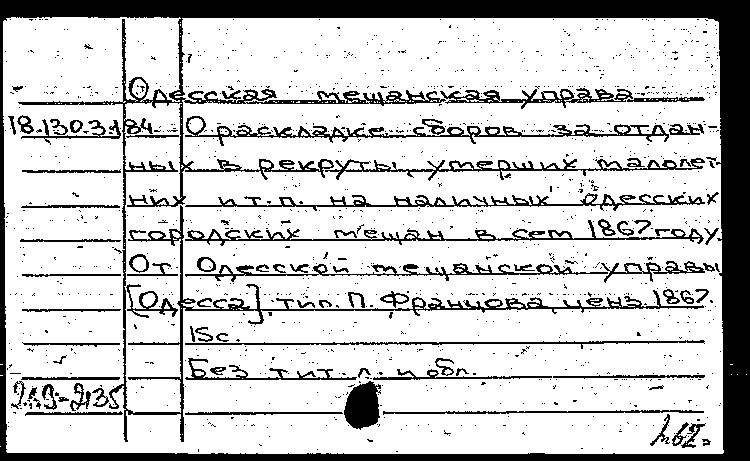 Одесская мещанская управа
18.130.3.184 О раскладке сборов за отдан-
ных в рекруты, умерших, малолет-
них и т.п., на наличных одесских
городских мещан в сем 1867 году.
От Одесской мещанской управы
[Одесса], тип. П. Францова, ценз. 1867.
15с.
Без тит. л. и обл.